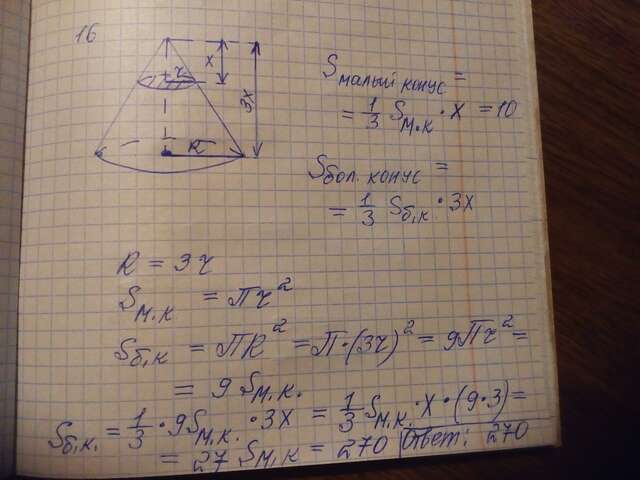 16
x
r
3x
R
S малый конус =
= 1/3 S м.к • x = 10
S бол. конус =
= 1/3 S б.к. • 3x
R = 3r
S м.к = Пr²
S б.к = ПR² = П•(3r)² = 9Пr² =
= 9 S м.к.
S б.к. = 1/3 • 9S м.к. • 3x = 1/3 S м.к. • x • (9•3) =
= 27 S м.к = 270 Ответ: 270